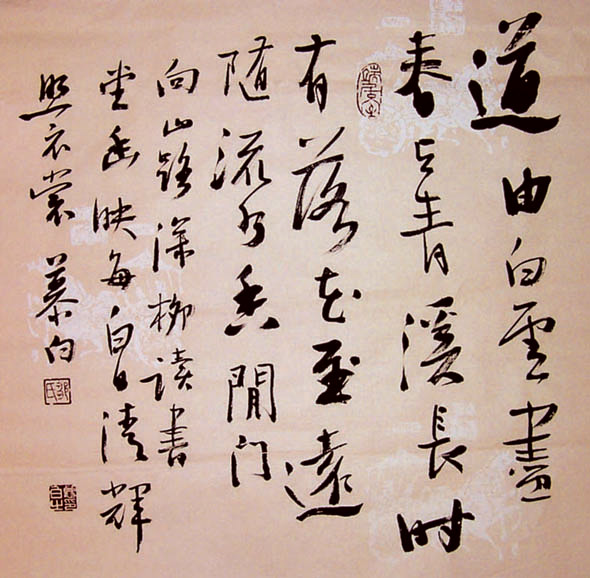 道由白雲盡
春与青溪長时
有落花至遠
随流水香閒门
向山路深柳读書
堂幽映每白日清輝
照衣裳 慕白